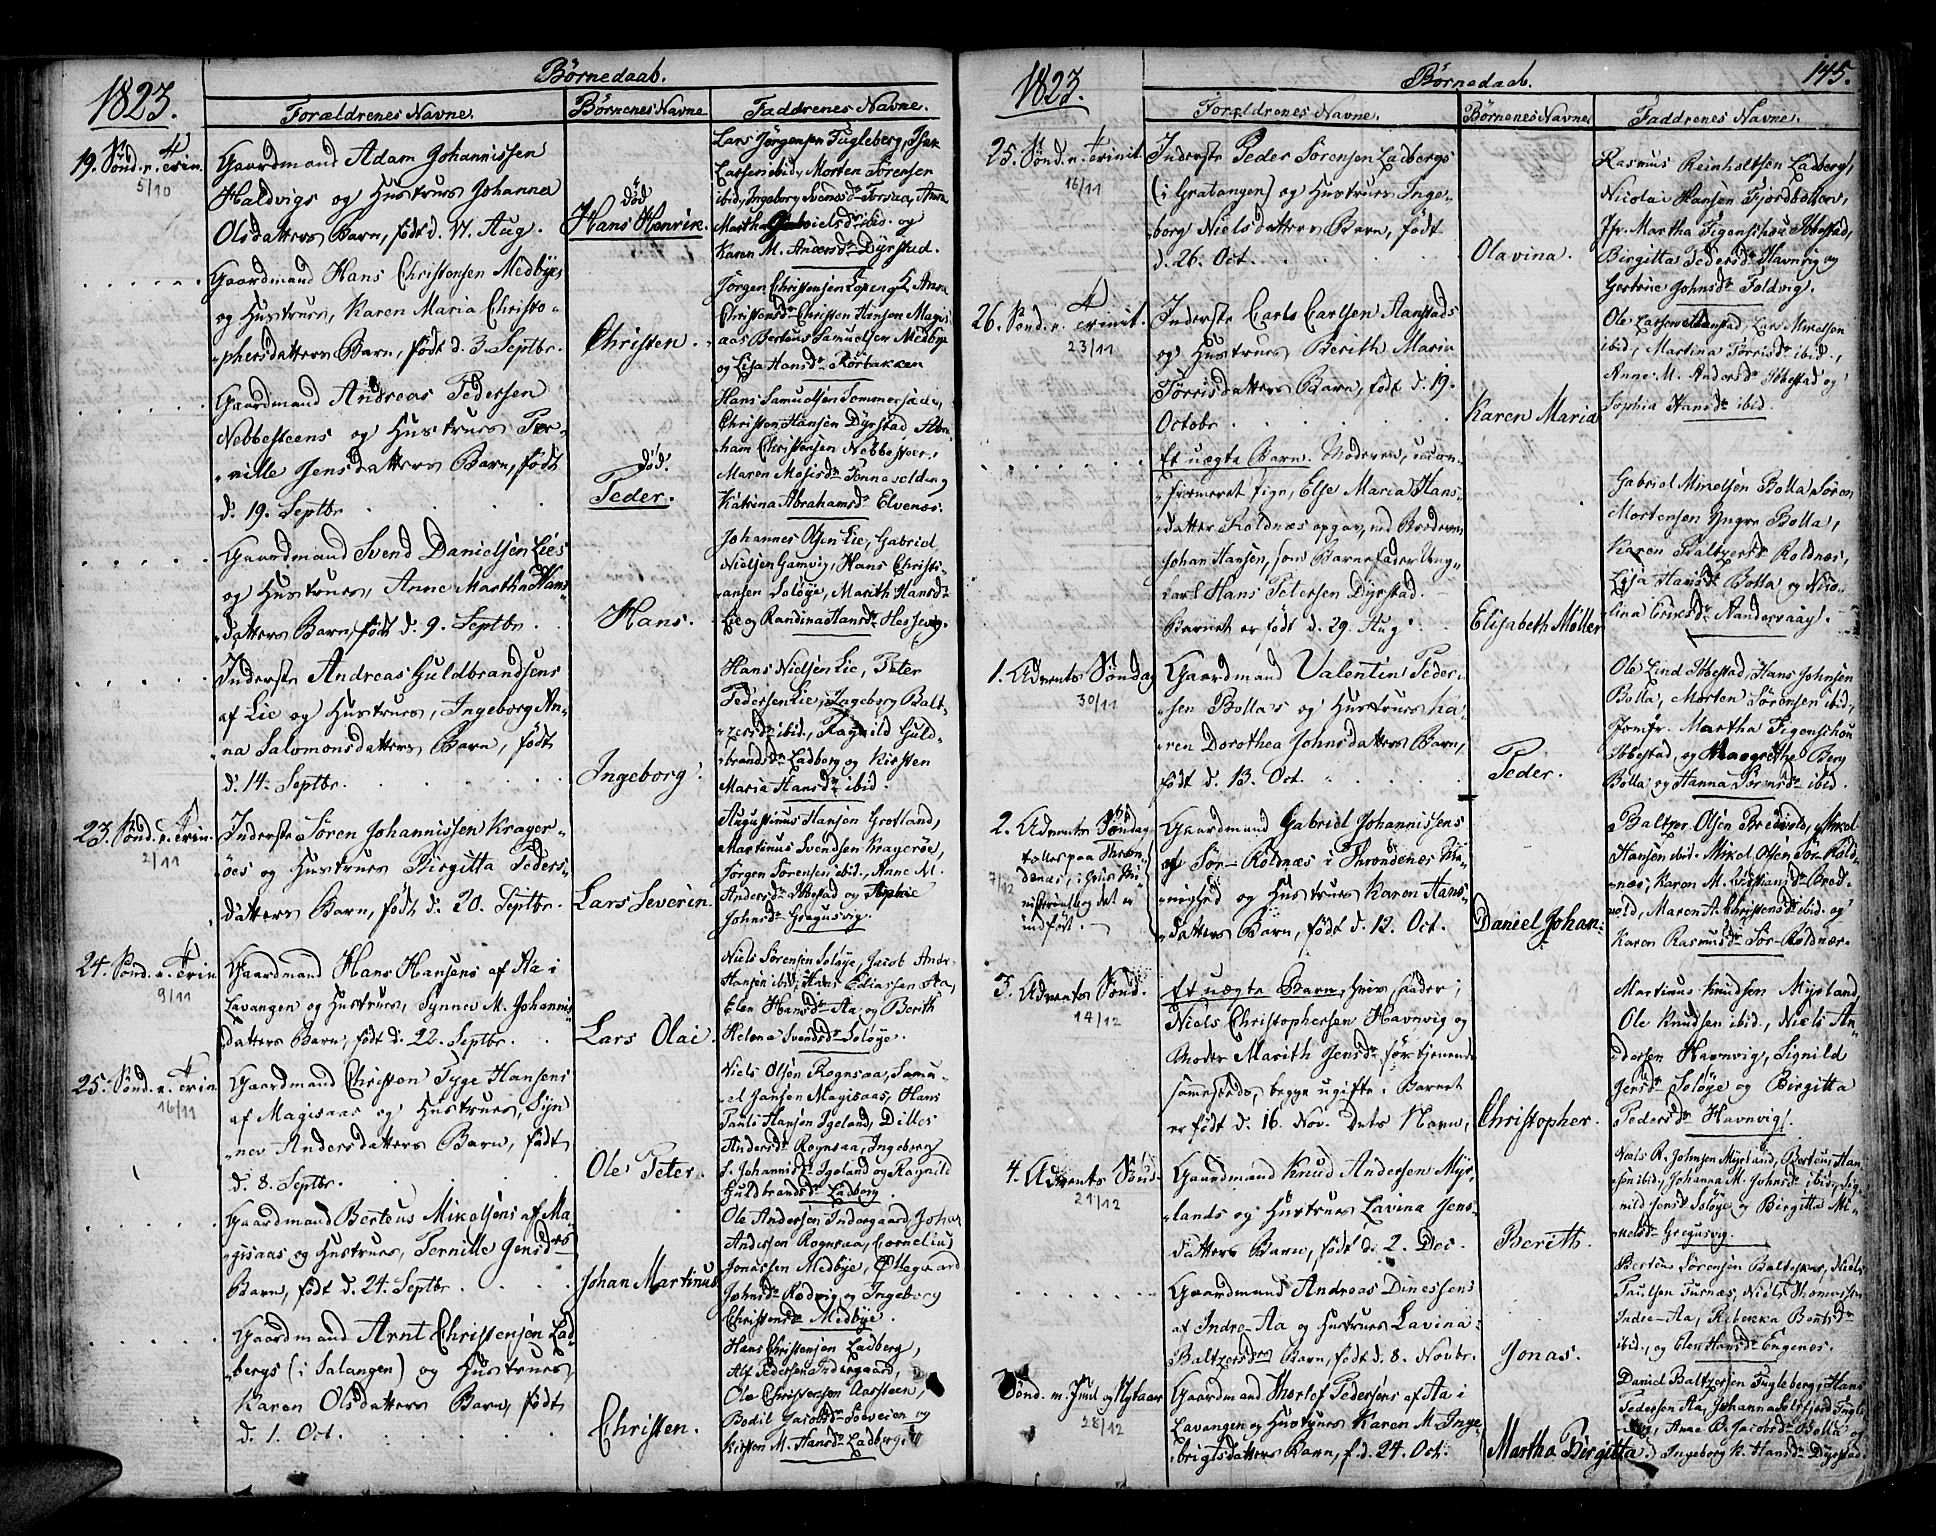 1823.
Børnedaab.
Forældrenes Navne.
Børnenes Navne
Faddrenes Navne.
19. Sønd. e. Trin.
5/10
Gaardmand Adam Johannissen
Haldvigs og Hustrues Johanna
Olsdatters Barn, født d. 17. Aug.
død
Hans Henrik.
Lars Jørgensen Fugleberg, Isak
Larsen ibid, Morten Sørensen
ibid, Ingeborg Svensdr Forsaa, Anna
Martha Gabrielsdr ibid. og
Karen M. Andersdr Dyrstad.
Gaardmand Hans Christensen Medbyes
og Hustrues, Karen Maria Christo-
phersdatters Barn, født d. 3. Septbr.
Christen.
Jørgen Christensen
Christensdr Christen Hansen Magis
aas Berteus Samuelsen Medbye
og Lisa Hansdr Rørbakken
Gaardmand Andreas Pedersen
Nebbesteens og Hustrues Per-
nille Jensdatters Barn, født
d. 19. Septbr.
død.
Peder.
Hans Samuelsen Sommersæde,
Christen Hansen Dyrstad Abra-
ham Christensen Nebbesteen,
Maren Mosisdr Tennevold og
Katrina Abrahamsdr Elvenæs.
Gaardmand Svend Danielsen Lies
og Hustrues, Anne Martha Hans-
datters Barn, født d. 9. Septbr.
Hans.
Johannes Olsen Lie, Gabriel
Nielsen Gamvig, Hans Christi-
ansen Soløye, Marith Hansdr
Lie og Randina Hansdr Hessevig.
Inderste Andreas Guldbrandsens
af Lie og Hustrues, Ingeborg An-
na Salomonsdatters Barn, født
d. 14. Septbr.
Ingeborg.
Hans Nielsen Lie, Peter
Pedersen Lie, Ingeborg Balt-
zersdr ibid., Ragnild Guld-
brandsdr Ladberg og Kirsten
Maria Hansdr ibid.
23. Sønd. e. Trin.
2/11
Inderste Søren Johannissen Krager-
øes og Hustrues Birgitta Peders-
datters Barn, født d. 20. Septbr.
Lars Severin.
Augustinus Hansen Grotland,
Martinus Svendsen Kragerøe,
Jørgen Sørensen ibid., Anne M.
Andersdr Ibbestad og Sophie
Johnsdr Gregusvig.
24. Sønd. e. Trin
9/11
Gaardmand Hans Hansens af Aa i
Lavangen og Hustrues, Synnev M. Johannis-
datters Barn, født d. 22. Septbr.
Lars Olai.
Niels Sørensen Soløye, Jacob Andr.
Hansen ibid, Hans Ediassen Aa,
Elen Hansdr Aa, og Berith
Helena Svendsdr Soløye.
25. Sønd. e. Trin
16/11
Gaardmand Christen Tyge Hansens
af Magisaas og Hustrues, Syn
nev Andersdatters Barn, født
d. 8. Septbr.
Ole Peter.
Niels Olsen Rognsaa, Samu-
el Jansen Magisaas, Hans
Paulo Hansen Igeland, Dilles
Andersdr Rognsaa, Ingeborg
S. Johannisdr Igeland og Ragnild
Guldbrandsdr Ladberg.
Gaardmand Berteus Mikelsens af Ma-
gisaas og Hustrues, Pernille Jensdrs
Barn, født d. 24. Septbr.
Johan Martinus
Ole Andersen Indergaard, Johan
Andersen Rognsaa, Cornelius
Jonassen Medbye, Øllegaard
Johnsdr Rødvig og Ingeborg
Christensdr Medbye.
Gaardmand Arnt Christensen Lad-
bergs (i Salangen) og Hustrues
Karen Olsdatters Barn, født
d. 1. Oct.
Christen.
Hans Christensen Ladberg,
Alf Pedersen Indergaard,
Ole Christensen Aarsteen,
Bodil Jacobsdr Soeveien og
Kirsten M. Hansdr Ladberg.
1823.
Børnedaab.
145.
Forældrenes Navne.
Børnenes Navne
Faddrenes Navne.
25. Sønd. e. Trinit.
16/11
Inderste Peder Sørensen Ladbergs
(i Gratangen) og Hustrues Inge-
borg Nielsdatters Barn, født
d. 26. Oct.
Olavina.
Rasmus Reinholtsen Ladberg,
Nicolai Hansen Fjordbotten,
Jfr. Martha Figenschou Ibbestad,
Birgitta Pedersdr Havnvig og
Gertrue Johnsdr Foldvig.
26. Sønd. e. Trinit.
23/11
Inderste Carls Carlsen Aanstads
og Hustrues Berith Maria
Tørrisdatters Barn, født d. 19.
Octobr.
Karen Maria
Ole Larsen Aanstad, Lars Mikelsen
ibid, Martina Tørrisdr ibid.,
Anne M. Andersdr Ibbestad og
Sophia Hansdr ibid.
Et uægte Barn. Moderen, ucon-
firmeret Pige, Else Maria Hans-
datter Roldnæs opgav, ved Broderen
Johan Hansen, som Barnefader Ung-
karl Hans Petersen Dyrstad.
Barnet er født d. 29. Aug.
Elisabeth Møller
Gabriel Mikelsen Bolla Søren
Mortensen Yngre Bolla,
Karen Baltzersdr Roldnæs,
Lisa Hansdr Bolla og Nico-
lina Ericsdr Aandervaag.
1. Advents Søndag
30/11
Gaardmand Valentin Peder-
sen Bolla's og Hustrues Ka-
ren Dorothea Johnsdatters Barn,
født d. 13. Oct.
Peder.
Ole Lind Ibbestad, Hans Johnsen
Bolla, Morten Sørensen ibid,
Jomfr. Martha Figenschou
Ibbestad, og Maagrethe Berg
Bolla og Hanna Sørensdr ibid.
2. Advents Søndag
7/12
holles paa Thron-
denæs, i hvis Mi-
nisterialbog det er
indført.
Gaardmand Gabriel Johannissens
af Sør-Roldnæs i Throndenes Me-
nighed og Hustrues Karen Hans-
datters Barn, født d. 12. Oct.
Daniel Johan.
Baltzer Olsen Bredvold, Mikel
Hansen ibid. Mikel Olsen Sør-Rold-
næs, Karen M. Christiansdr Bred-
vold, Maren A. Christensdr ibid. og
Karen Rasmusdr Sør-Roldnæs.
3. Advents Sønd.
14/12
Et uægte Barn, hvis Fader,
Niels Christophersen Havnvig og
Moder Marith Jensdr før tjenende
sammesteds, begge ugifte. Barnet
er født d. 16. Nov. Dets Navn,
Christopher.
Martinus Knudsen Myrland,
Ole Knudsen ibid., Niels An-
dersen Havnvig, Signild
Jensdr Soløye og Birgitta
Pedersdr Havnvig.
4. Advents Sønd.
21/12
Gaardmand Knud Andersen Myr-
lands og Hustrues Lavina Jens-
datters Barn, født d. 2. Dec.
Berith.
Niels R. Johnsen Myrland, Berteus Han-
sen ibid, Johanna M. Johnsdr ibid, Sig-
nild Jensdr Soløye og Birgitta Mi-
kelsdr Gregusvig.
Gaardmand Andreas Dinessens
af Indre-Aa og Hustrues Lavina
Baltzersdrs Barn, født d. 8. Novbr.
Jonas.
Berteus Sørensen Balteskar, Niels
Paulsen Furnæs, Niels Thomassen
Indre-Aa, Rebekka Bentsdr
ibid., og Elen Hansdr Engenæs.
Sønd. m. Juul og Nytaar
28/12
Gaardmand Thorlef Pedersens af Aa i
Lavangen og Hustrues Karen M. Inge-
brigtsdatters Barn, f. d. 24. Oct.
Martha Birgitta.
Daniel Baltzersen Fugleberg, Hans
Pedersen Aa, Johanna
Anne B. Jacobsdr Bolla og
Ingeborg K. Hansdr Dyrstad.